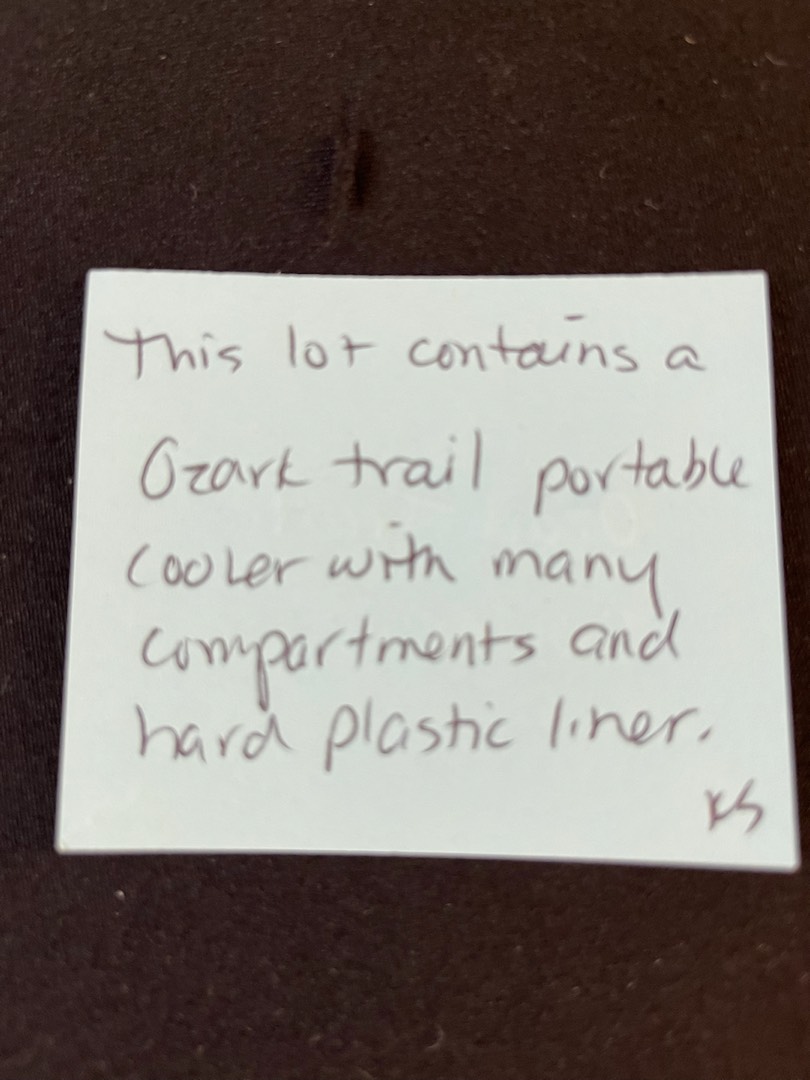 This lot contains a
Ozark trail portable
cooler with many
compartments and
hard plastic liner.
KS